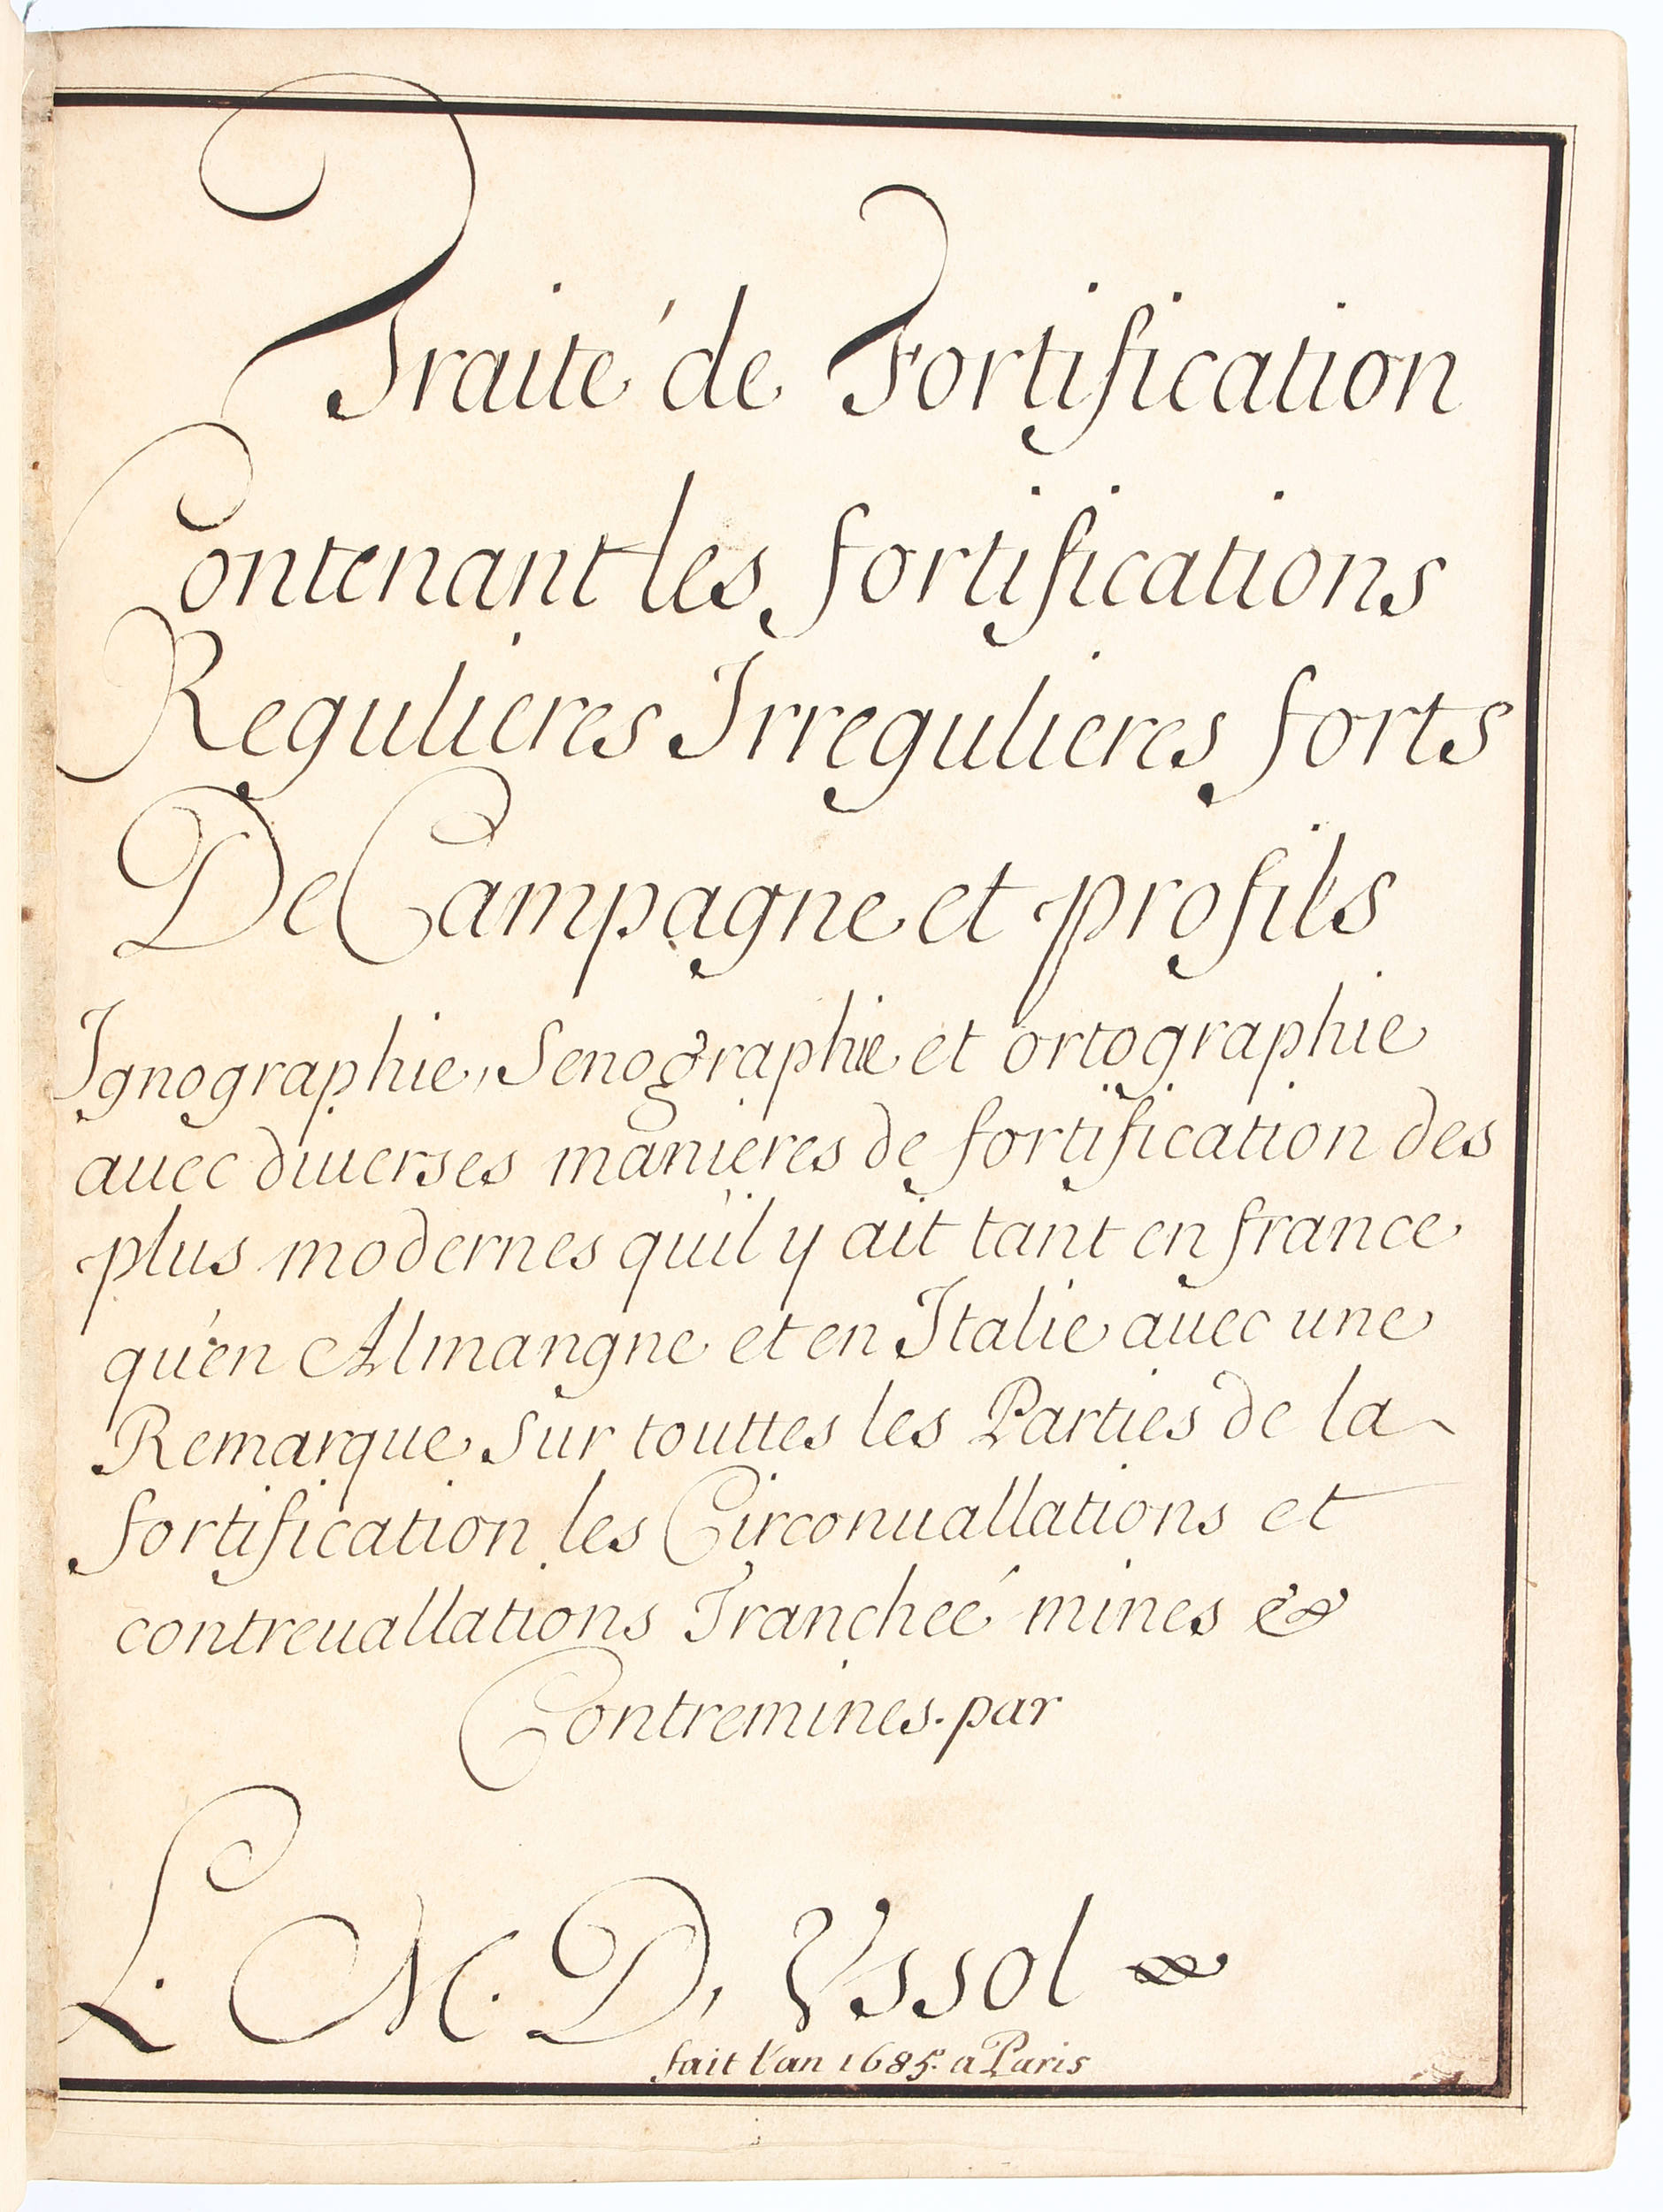 Traité de Fortification
Contenant les fortifications
Regulieres Irregulieres forts
De Campagne et profils
Ignographie, Senographie et ortographie
auec diuerses manieres de fortification des
plus modernes qu'il y ait tant en france
qu'en Almangne et en Italie auec une
Remarque sur touttes les Parties de la
fortification les Circonuallations et
contreuallations Trancheé mines &
Contremines. par
L. M. D, Ussol
fait l'an 1685. a Paris